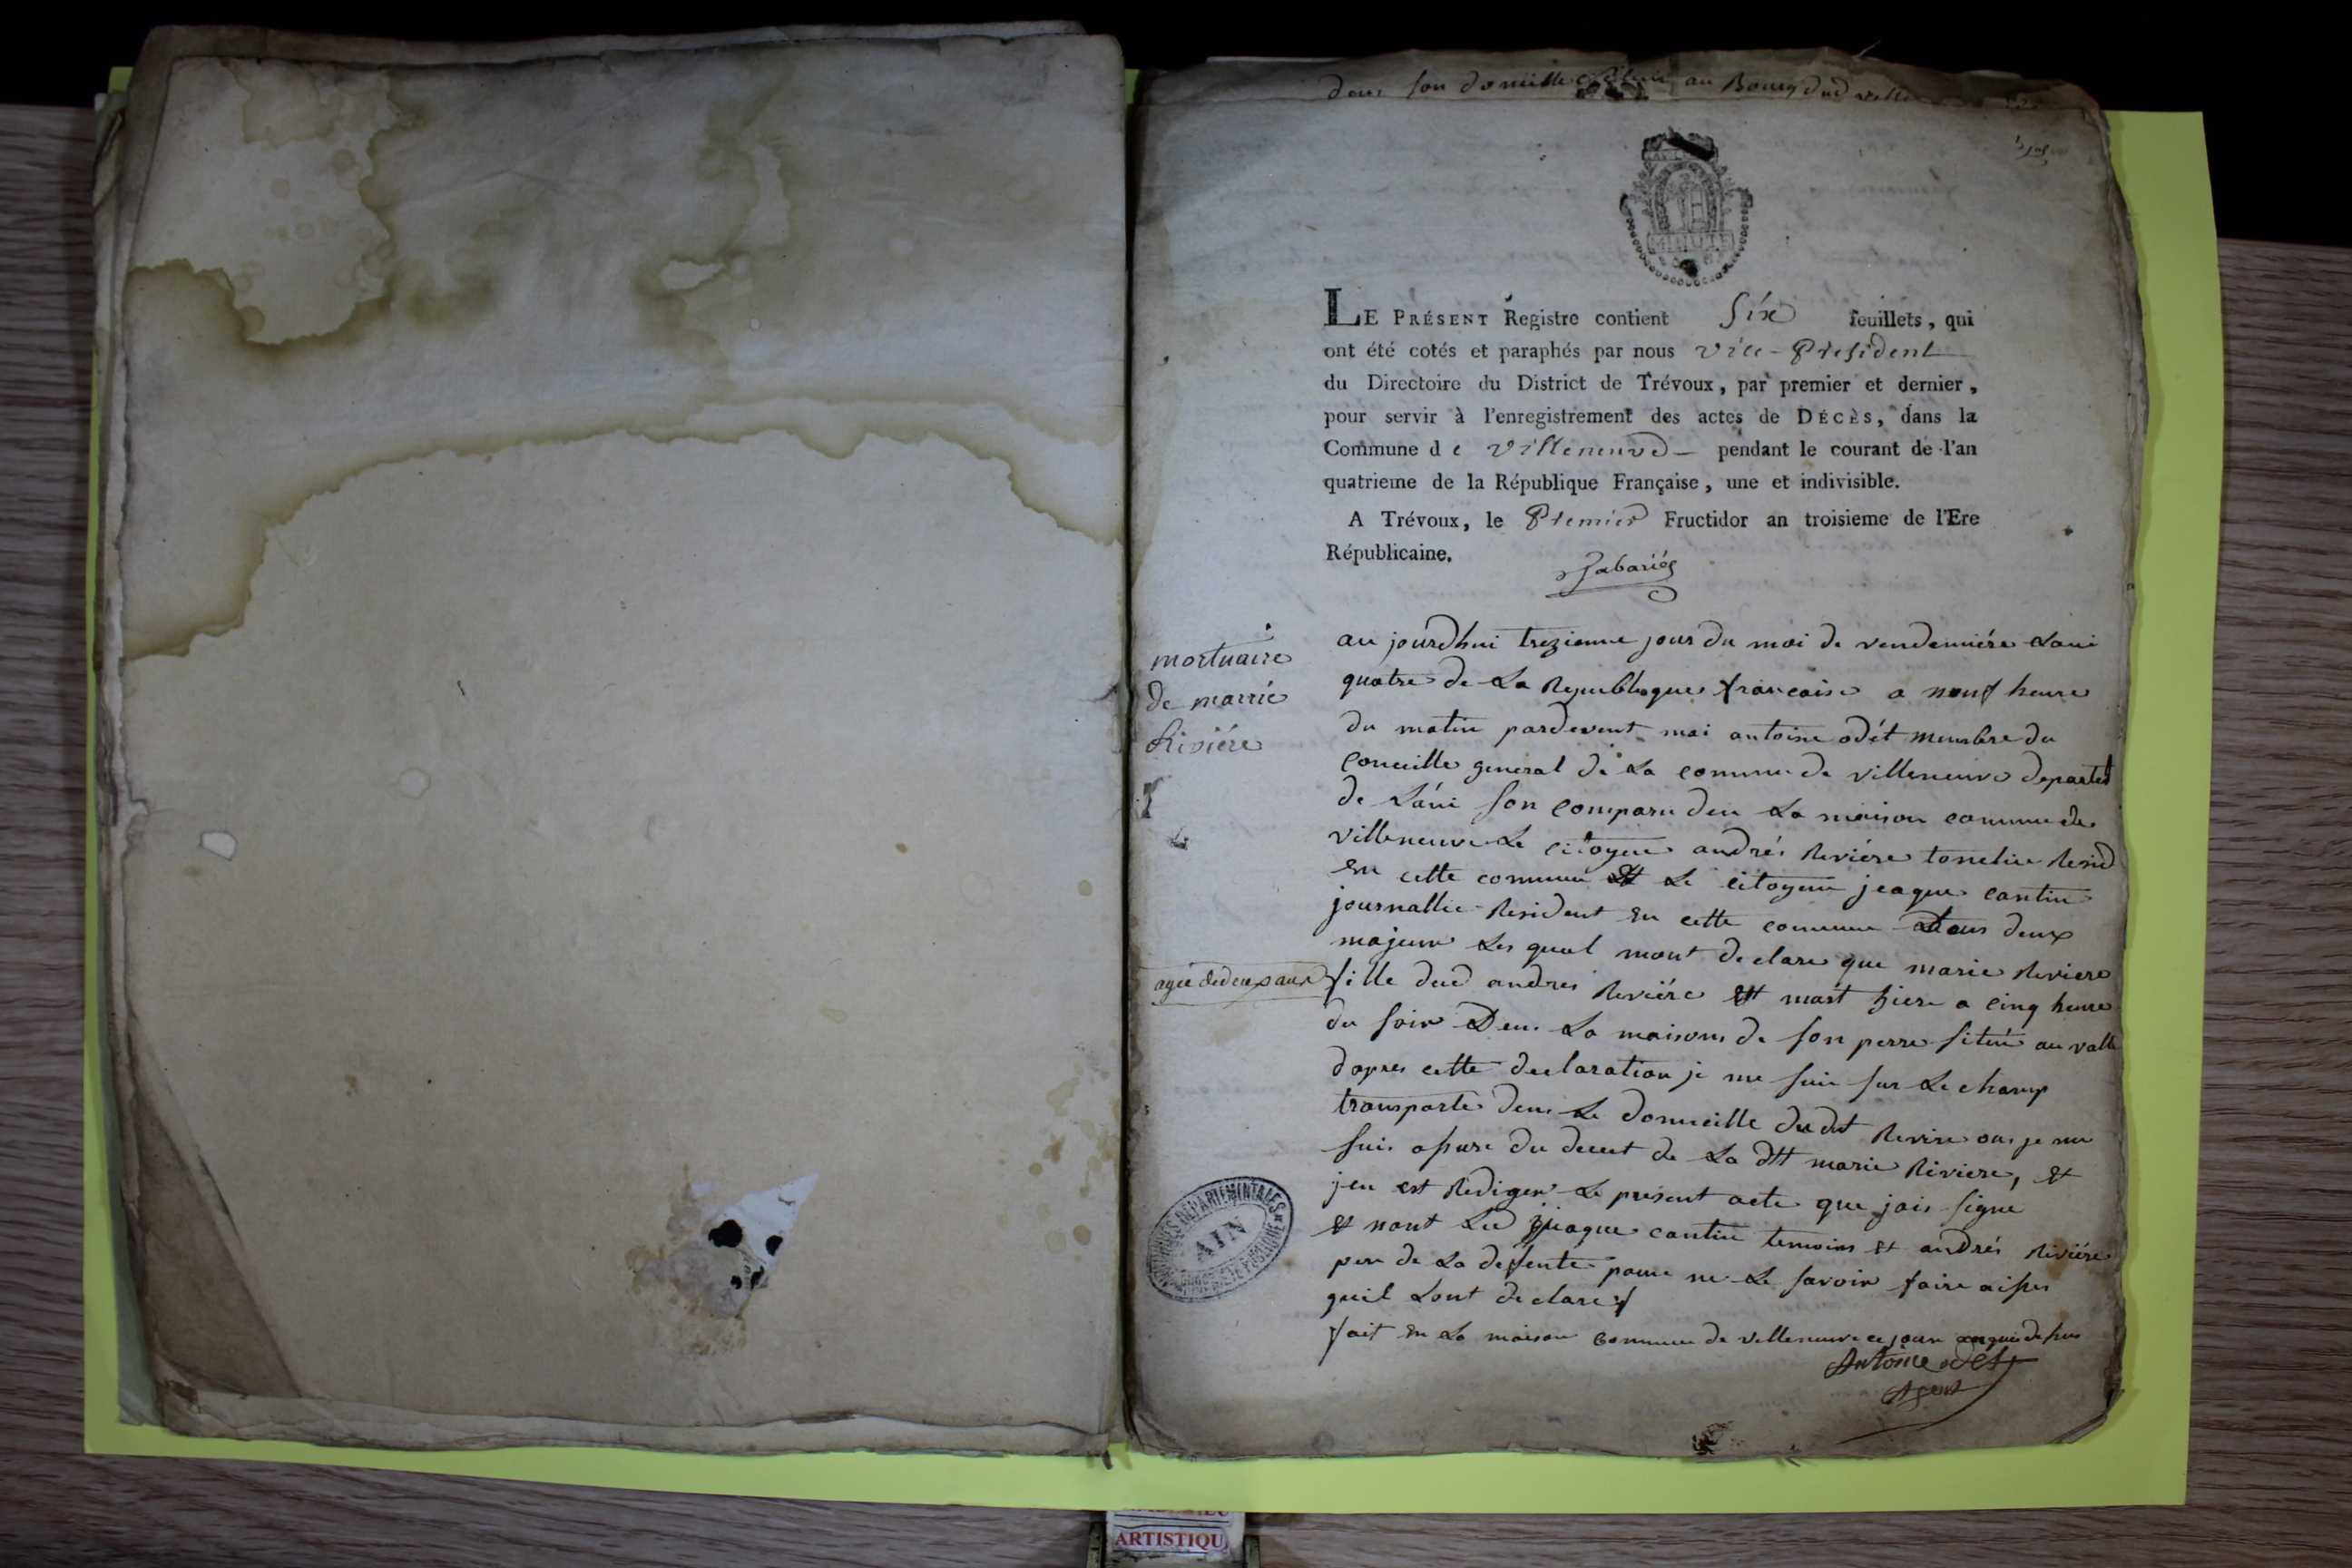 dans son domicille au Bourg dud
MINUTE
LE PRÉSENT Registre contient Six feuillets, qui
ont été cotés et paraphés par nous Vice-President
du Directoire du District de Trévoux, par premier et dernier,
pour servir à l'enregistrement des actes de DÉCÈS, dans la
Commune de Villeneuve pendant le courant de l'an
quatrieme de la République Française, une et indivisible.
A Trévoux, le Premier Fructidor an troisieme de l'Ere
Républicaine.
mortuaire
de marrie
Riviére
au jourdhui trezieme jour du moi de vendemiére Lani
quatre de La Republique francaise a neuf heure
du matin pardevent moi antoine odét membre du
Concuille general de La comune de villeneuve
de Láni son comparu den La maison commune de
villeneuve Le citoyen andrés Reviére tonelie Resid
en cette commune et Le citoyen jeaque cantin
journallie Resident en cette commune tous deux
majeur Les quel mont declare que marie Reviere
agée de deux ans
fille dud andres Reviére est mort hiere a cinq heure
du soir Den La maisons de son perre sitúé au
dapres cette declaration je me suis sur Le champ
transporte den Le domicille dudit Revire ou je me
suis asure du decet de La ditt marie Riviere, et
jen est Rediger Le présent acte que jais signé
et nont Led jeaque cantin temoins et andrés Riviére
pere de La defente pour ne Le savoir faire
quil Lont declare
fait en La maison commune de villeneuve ce jour
Antoine odet
Agent
ARCHIVES DEPARTEMENTALES
AIN
ARTISTIQU